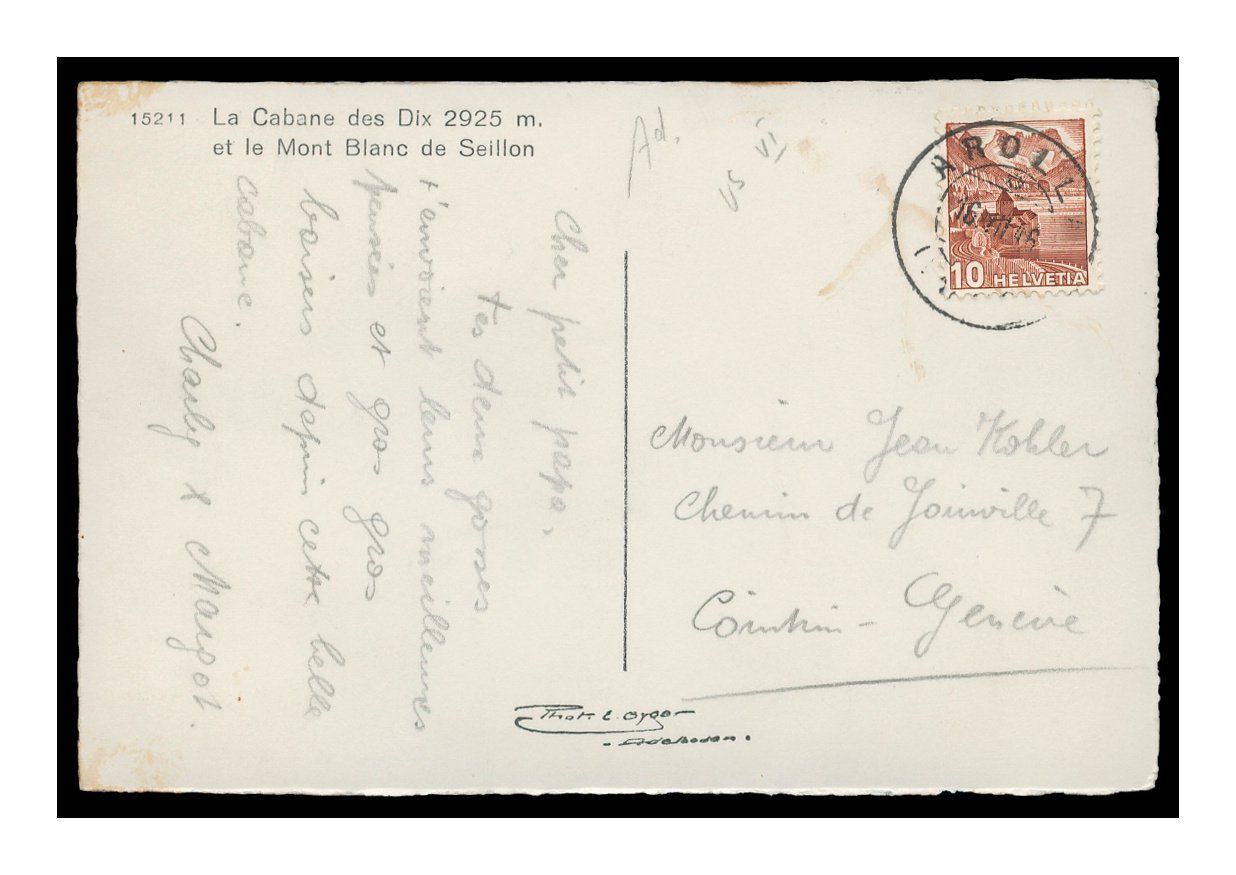 15211 La Cabane des Dix 2925 m.
et le Mont Blanc de Seillon
Cher petit papa,
tes deux gosses
t'envoient leurs meilleures
pensées et gros gros
baisers depuis cette belle
cabane.
Charly & Margot.
Ad.
10 HELVETIA
AROLL
16 VII 46
Monsieur Jean Kohler
Chemin de Joinville 7
Cointrin - Genève
Phot. E. Gyger
- Adelboden.